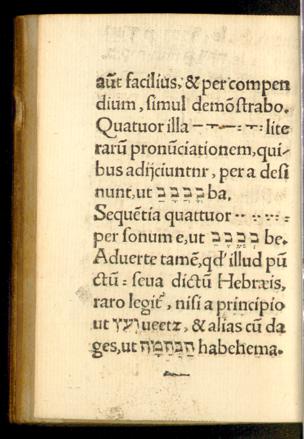 aūt facilius, & per compen
dium, simul demōstrabo.
Quatuor illa lite
rarū pronūciationem, qui-
bus adijciuntnr, per a desi
nunt, ut ba.
Sequētia quattuor
per sonum e, ut be.
Aduerte tamē, qd' illud pū
ctū : seua dictū Hebræis,
raro legit', nisi a principio
ut ועץ ueetz, & alias cū da
ges, ut הַבְּהֵמָה habehema.